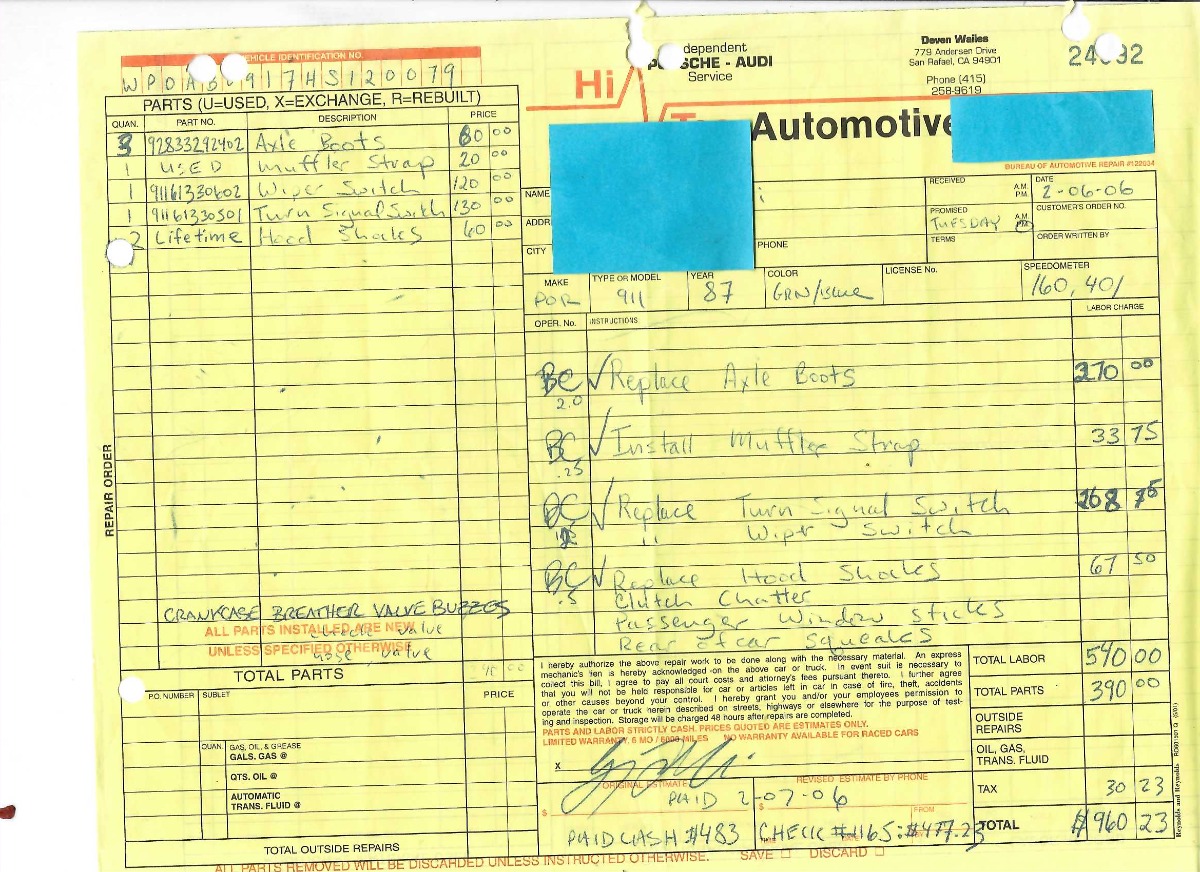 VEHICLE IDENTIFICATION NO.
917HS120079
PARTS (U=USED, X=EXCHANGE, R=REBUILT)
QUAN. PART NO. DESCRIPTION PRICE
3 92833292402 Axle Boots 60 00
1 USED Muffler Strap 20 00
1 91161330602 Wiper Switch 120 00
1 91161330501 Turn Signal Switch 130 00
2 Lifetime Hood Shocks 60 00
REPAIR ORDER
CRANKCASE BREATHER VALVE BUZZES
ALL PARTS INSTALLED ARE NEW
UNLESS SPECIFIED OTHERWISE
check valve
valve
TOTAL PARTS
P.O. NUMBER SUBLET PRICE
QUAN. GAS, OIL, & GREASE
GALS. GAS @
QTS. OIL @
AUTOMATIC
TRANS. FLUID @
TOTAL OUTSIDE REPAIRS
Hi
dependent
- AUDI
Service
Automotive
Deven Wailes
779 Andersen Drive
San Rafael, CA 94901
Phone (415)
258-9619
BUREAU OF AUTOMOTIVE REPAIR #122034
NAME
CITY
PHONE
RECEIVED A.M. P.M.
DATE 2-06-06
PROMISED TUESDAY A.M. P.M.
CUSTOMER'S ORDER NO.
TERMS
ORDER WRITTEN BY
MAKE POR
TYPE OR MODEL 911
YEAR 87
COLOR GRN/BLUE
LICENSE No.
SPEEDOMETER 160,401
OPER. No. INSTRUCTIONS LABOR CHARGE
BC ✓ Replace Axle Boots 270 00
2.0
BC ✓ Install Muffler Strap 33 75
.25
BC ✓ Replace Turn Signal Switch 168 75
" Wiper Switch
BC ✓ Replace Hood Shocks 67 50
.5 Clutch Chatter
Passenger Window sticks
Rear of car squeaks
I hereby authorize the above repair work to be done along with the necessary material. An express
mechanic's lien is hereby acknowledged on the above car or truck. In event suit is necessary to
collect this bill, I agree to pay all court costs and attorney's fees pursuant thereto. I further agree
that you will not be held responsible for car or articles left in car in case of fire, theft, accidents
or other causes beyond your control. I hereby grant you and/or your employees permission to
operate the car or truck herein described on streets, highways or elsewhere for the purpose of test-
ing and inspection. Storage will be charged 48 hours after repairs are completed.
PARTS AND LABOR STRICTLY CASH. PRICES QUOTED ARE ESTIMATES ONLY.
LIMITED WARRANTY, 6 MO / 6000 MILES NO WARRANTY AVAILABLE FOR RACED CARS
X
ORIGINAL ESTIMATE REVISED ESTIMATE BY PHONE
PAID 2-07-06
$ $ FROM
PAID CASH $483 CHECK #1165: $477.23
TOTAL LABOR 540 00
TOTAL PARTS 390 00
OUTSIDE
REPAIRS
OIL, GAS,
TRANS. FLUID
TAX 30 23
TOTAL $960 23
ALL PARTS REMOVED WILL BE DISCARDED UNLESS INSTRUCTED OTHERWISE. SAVE ☐ DISCARD ☐